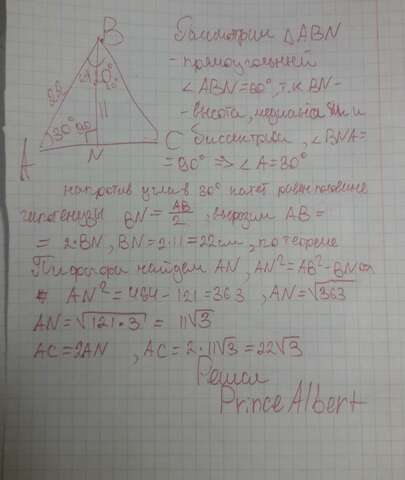 B
Рассмотрим △ABN
- прямоугольный
∠ABN=60°, т.к. BN -
- высота, медиана и
C биссектриса, ∠BNA=
= 90° => ∠A=30°
22
60°
11
30° 90
A
N
напротив угла в 30° катет равен половине
гипотенузы BN = AB/2, выразим AB =
= 2·BN, BN=2·11=22см, по теореме
Пифагора найдем AN, AN²=AB²-BN²
AN²=484-121=363, AN=√363
AN=√121·3 = 11√3
AC=2AN, AC=2·11√3=22√3
Решал
Prince Albert